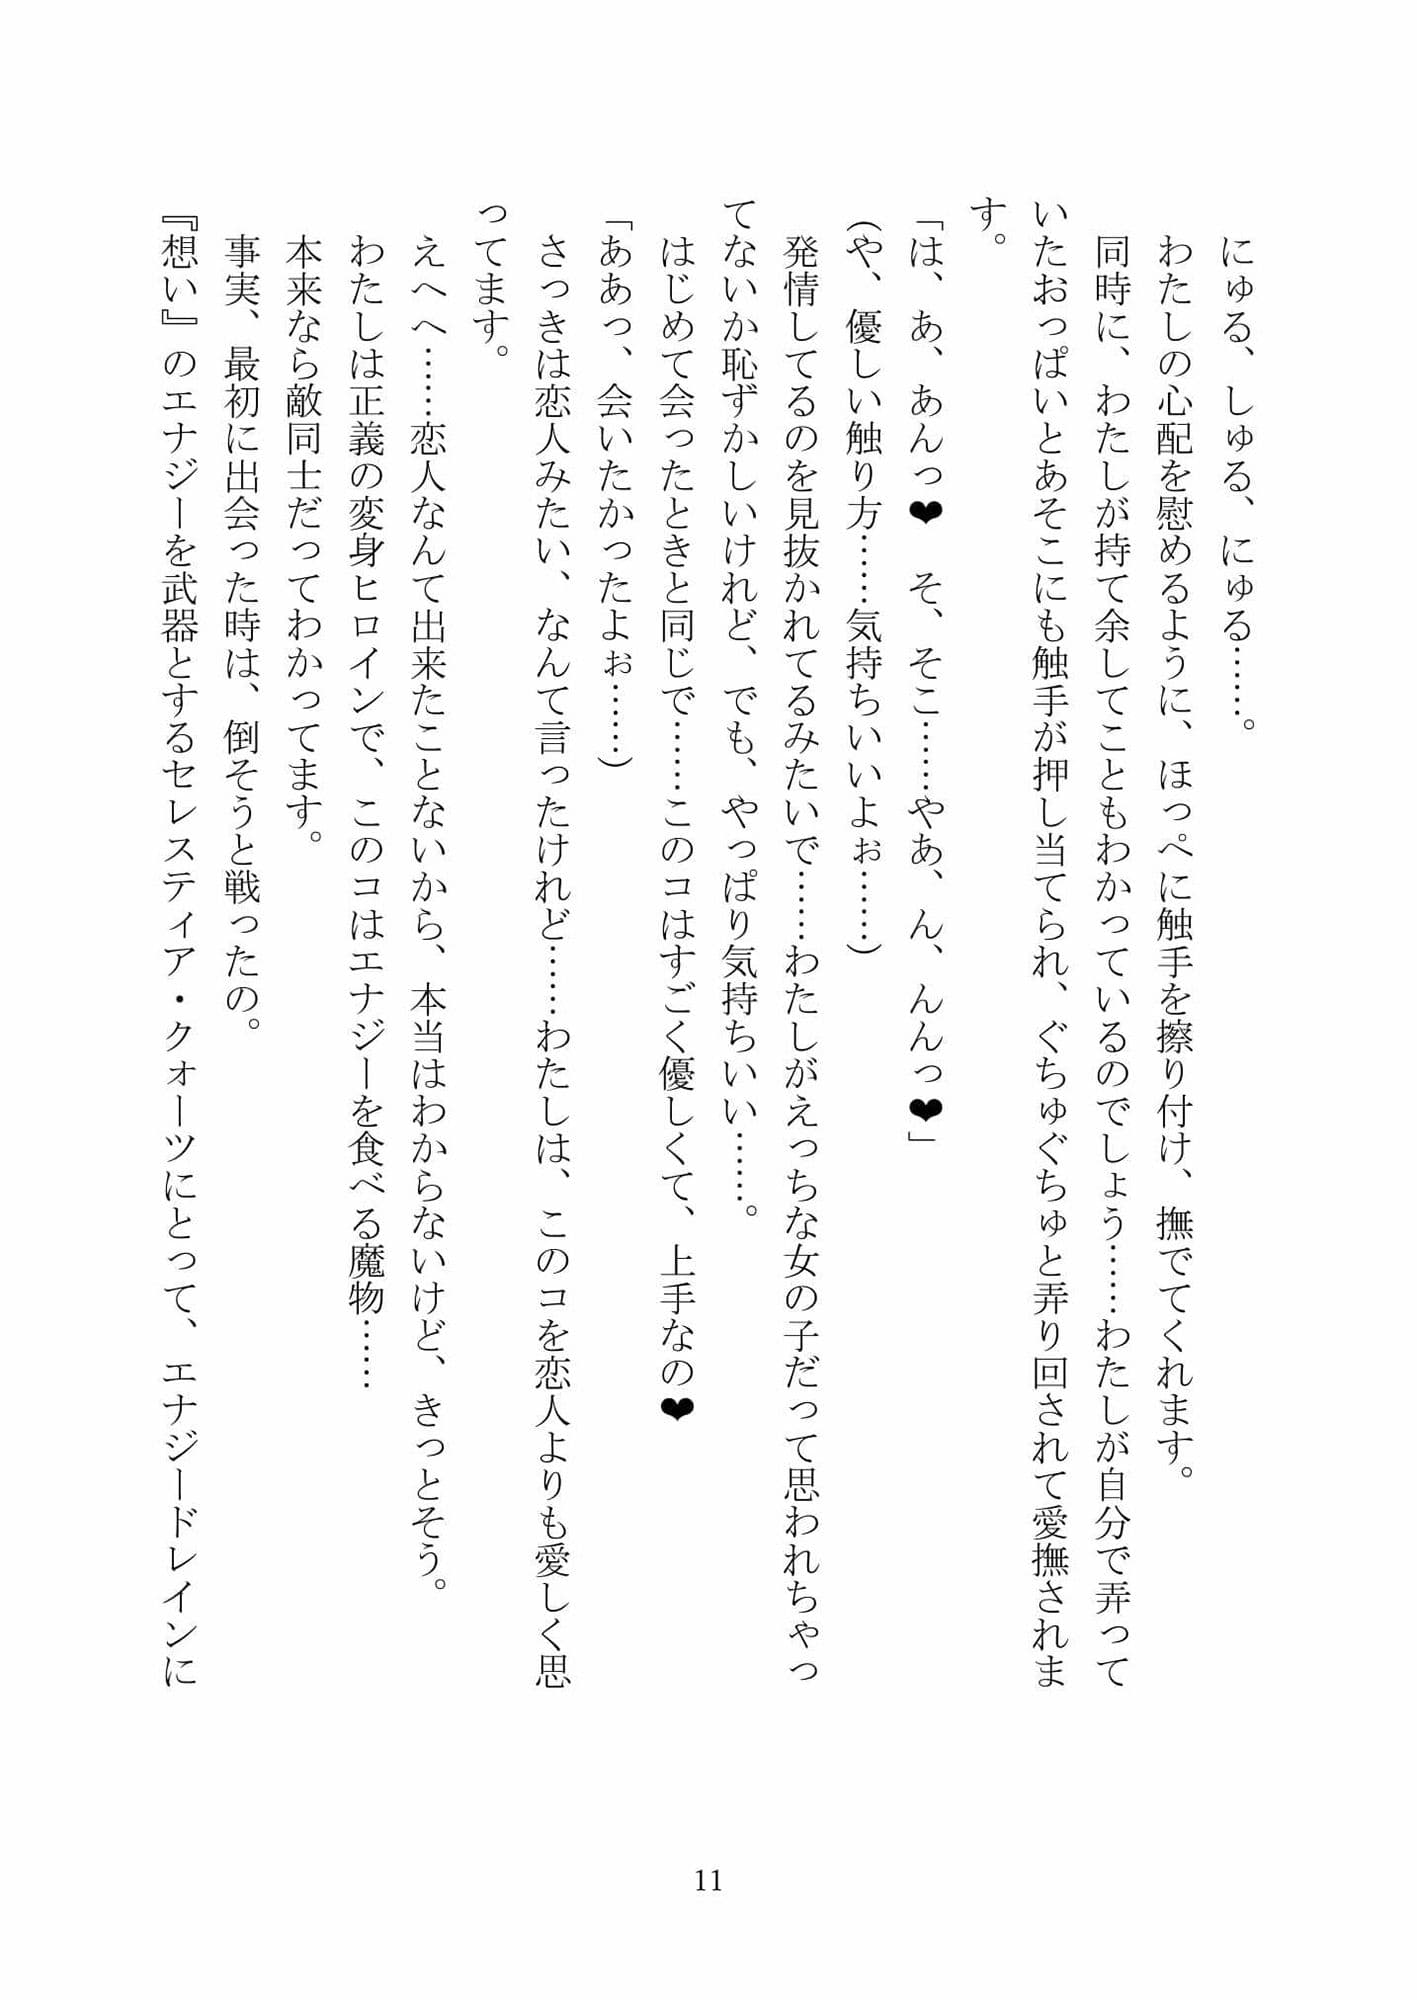 にゅる、しゅる、にゅる……。
わたしの心配を慰めるように、ほっぺに触手を擦り付け、撫でてくれます。
同時に、わたしが持て余してこともわかっているのでしょう……わたしが自分で弄って
いたおっぱいとあそこにも触手が押し当てられ、ぐちゅぐちゅと弄り回されて愛撫されま
す。
「は、あ、あんっ❤　そ、そこ……やあ、ん、んんっ❤」
(や、優しい触り方……気持ちいいよぉ……)
発情してるのを見抜かれてるみたいで……わたしがえっちな女の子だって思われちゃっ
てないか恥ずかしいけれど、でも、やっぱり気持ちいい……。
はじめて会ったときと同じで……このコはすごく優しくて、上手なの❤
「ああっ、会いたかったよぉ……)
さっきは恋人みたい、なんて言ったけれど……わたしは、このコを恋人よりも愛しく思
ってます。
えへへ……恋人なんて出来たことないから、本当はわからないけど、きっとそう。
わたしは正義の変身ヒロインで、このコはエナジーを食べる魔物……
本来なら敵同士だってわかってます。
事実、最初に出会った時は、倒そうと戦ったの。
『想い』のエナジーを武器とするセレスティア・クォーツにとって、エナジードレインに
11